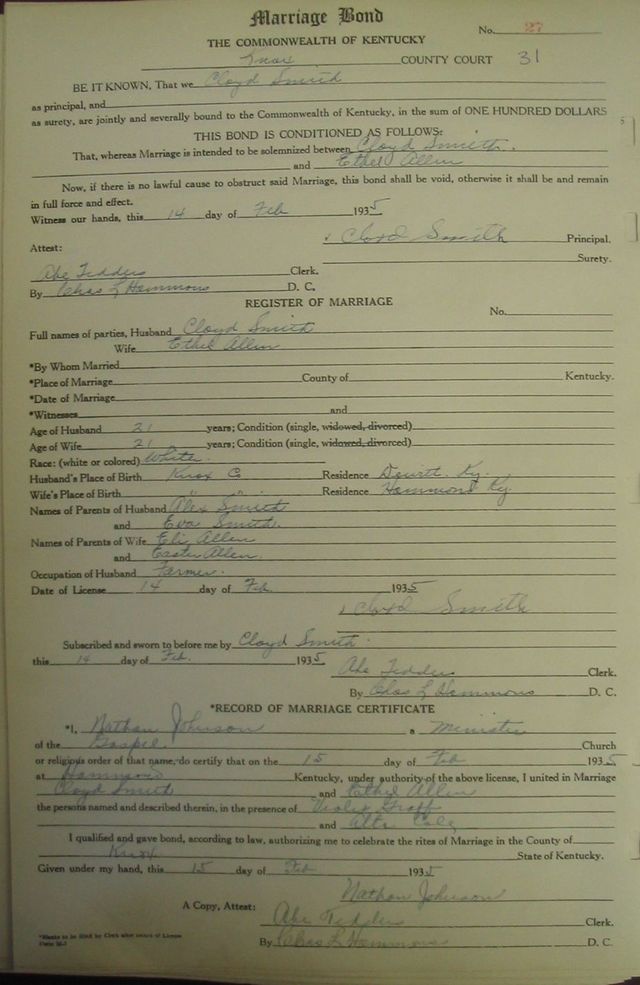 Marriage Bond
No. 27
THE COMMONWEALTH OF KENTUCKY
Knox COUNTY COURT 31
BE IT KNOWN, That we Cloyd Smith
as principal, and
as surety, are jointly and severally bound to the Commonwealth of Kentucky, in the sum of ONE HUNDRED DOLLARS
THIS BOND IS CONDITIONED AS FOLLOWS:
That, whereas Marriage is intended to be solemnized between Cloyd Smith.
and Ethel Allen
Now, if there is no lawful cause to obstruct said Marriage, this bond shall be void, otherwise it shall be and remain
in full force and effect.
Witness our hands, this 14 day of Feb 1935
Cloyd Smith Principal.
Attest: Surety.
Abe Tedders Clerk.
By Chas L Hammons D. C.
REGISTER OF MARRIAGE
No.
Full names of parties, Husband Cloyd Smith
Wife Ethel Allen
*By Whom Married
*Place of Marriage County of Kentucky.
*Date of Marriage
*Witnesses and
Age of Husband 21 years; Condition (single, widowed, divorced)
Age of Wife 21 years; Condition (single, widowed, divorced)
Race: (white or colored) White.
Husband's Place of Birth Knox Co Residence Dewitt Ky.
Wife's Place of Birth " " Residence Hammond Ky
Names of Parents of Husband Alex Smith
and Eva Smith.
Names of Parents of Wife Eli Allen
and Easter Allen.
Occupation of Husband Farmer.
Date of License 14 day of Feb 1935
Cloyd Smith
Subscribed and sworn to before me by Cloyd Smith.
this 14 day of Feb. 1935
Abe Tedders Clerk.
By Chas L Hammons D. C.
*RECORD OF MARRIAGE CERTIFICATE
*I, Nathan Johnson a Minister
of the Gospel. Church
or religious order of that name, do certify that on the 15 day of Feb 1935
at Hammond Kentucky, under authority of the above license, I united in Marriage
Cloyd Smith and Ethel Allen
the persons named and described therein, in the presence of Violet
and
I qualified and gave bond, according to law, authorizing me to celebrate the rites of Marriage in the County of
Knox State of Kentucky.
Given under my hand, this 15 day of Feb 1935
Nathan Johnson
A Copy, Attest: Abe Tedders Clerk.
*Blanks to be filled by Clerk after return of License
By Chas L Hammons D. C.